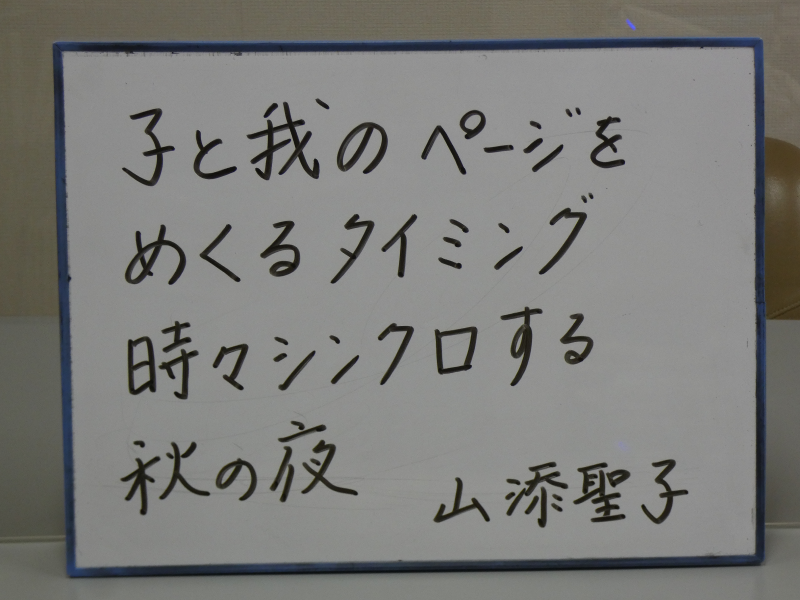 子と我のページを
めくるタイミング
時々シンクロする
秋の夜
山添聖子